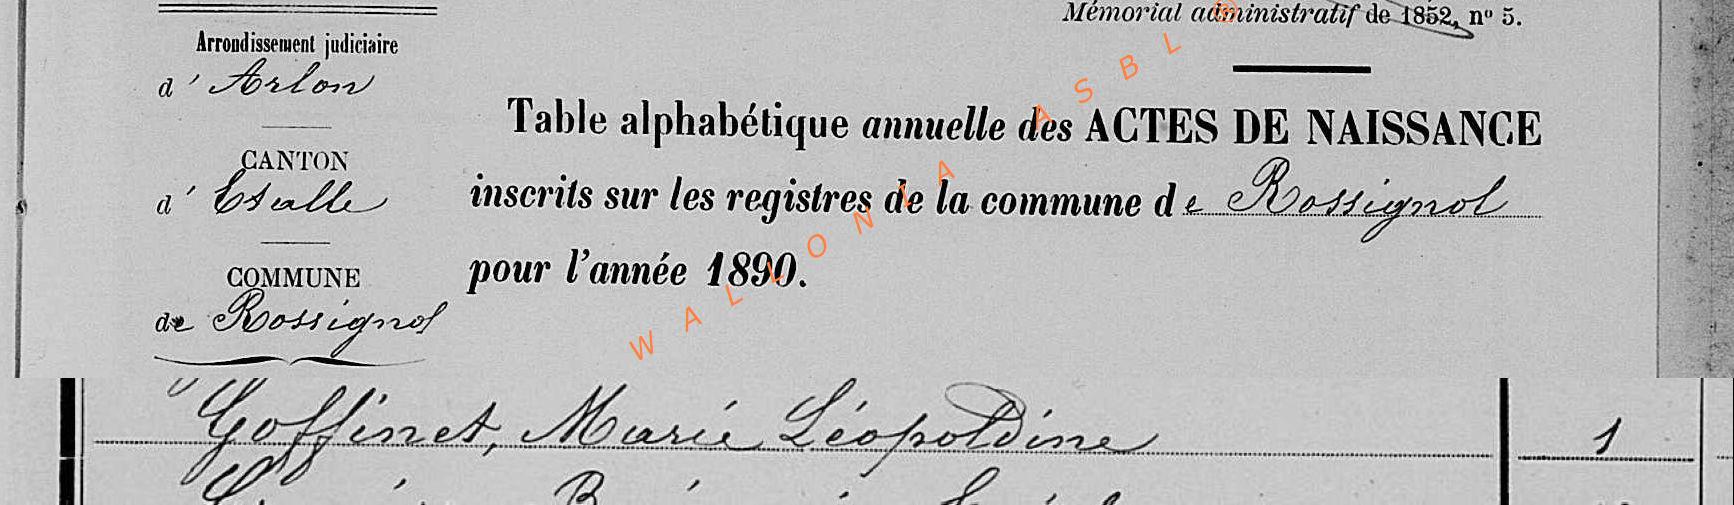 Mémorial administratif de 1852, nº 5.
Arrondissement judiciaire
d' Arlon
CANTON
d' Etalle
COMMUNE
de Rossignol
Table alphabétique annuelle des ACTES DE NAISSANCE
inscrits sur les registres de la commune de Rossignol
pour l'année 1890.
WALLONIA ASBL ®
Goffinet, Marie Léopoldine 1